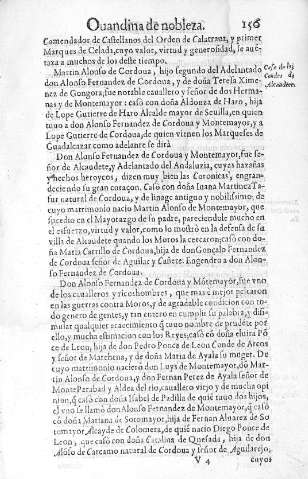 Ouandina de nobleza. 156
Comendador de Castellanos del Orden de Calatraua, y primer
Marques de Celada, cuyo valor, virtud y generosidad, se auẽ-
taxa a muchos de los deste tiempo.
Martin Alonso de Cordoua, hijo segundo del Adelantado
Casa de los
don Alonso Fernandez de Cordoua, y de doña Teresa Xime-
Condes de
nez de Gongora, fue notable cauallero y señor de dos Herma-
Alcaudete.
nas y de Montemayor: casò con doña Aldonza de Haro, hija
de Lope Gutierre de Haro Alcalde mayor de Seuilla, en quien
tuuo a don Alonso Fernandez de Cordoua y Montemayor, y a
Lope Gutierre de Cordoua, de quien vienen los Marqueses de
Guadalcazar como adelante se dirà
Don Alonso Fernandez de Cordoua y Montemayor, fue se-
ñor de Alcaudete, y Adelantado del Andaluzia, cuyas hazañas
y hechos heroycos, dizen muy bien las Coronicas, engran-
deciendo su gran coraçon. Casò con doña Iuana Martinez Ta-
fur natural de Cordoua, y de linage antiguo y nobilissimo, de
cuyo matrimonio nacio Martin Alonso de Montemayor, que
sucedio en el Mayorazgo de su padre, pareciendole mucho en
el esfuerço, virtud y valor, como lo mostrò en la defensa de su
villa de Alcaudete quando los Moros la cercaron; casò con do-
ña Maria Carrillo de Cordoua, hija de don Gonçalo Fernandez
de Cordoua señor de Aguilar y Cañete. Engendrò a don Alon-
so Fernandez de Cordoua.
Don Alonso Fernandez de Cordoua y Mõtemayor, fue vno
de los caualleros y ricoshombres, que mas è mejor pelearon
en las guerras contra Moros, y de agradable condicion con to-
do genero de gentes, y tan entero en cumplir su palabra, y dissi-
mular qualquier acaecimiento que tuuo nombre de prudẽte por
ello, y mucha estimacion con los Reyes; casò cõ doña eluira Põ-
ce de Leon, hija de don Pedro Ponce de Leon Conde de Arcos
y señor de Marchena, y de doña Maria de Ayala su muger. De
cuyo matrimonio nacierõ don Luys de Montemayor, dõ Mar-
tin Alonso de Cordoua, y don Fernan Perez de Ayala señor de
Monte
y Aldea del rio, cauallero viejo y de mucha opi-
nion, que casò con doña Isabel de Padilla de quiẽ tuuo dos hijos,
el vno se llamò don Alonso Fernandez de Montemayor, que casò
cõ doña Mariana de Sotomayor, hija de Fernan Aluarez de So-
tomayor Alcayde de Colomera, de quiẽ nacio Diego Ponce de
Leon, que casò con doña Catalina de Quesada, hija de don
Alonso de Carcamo natural de Cordoua y señor de Aguilarejo,
V 4 cuyos